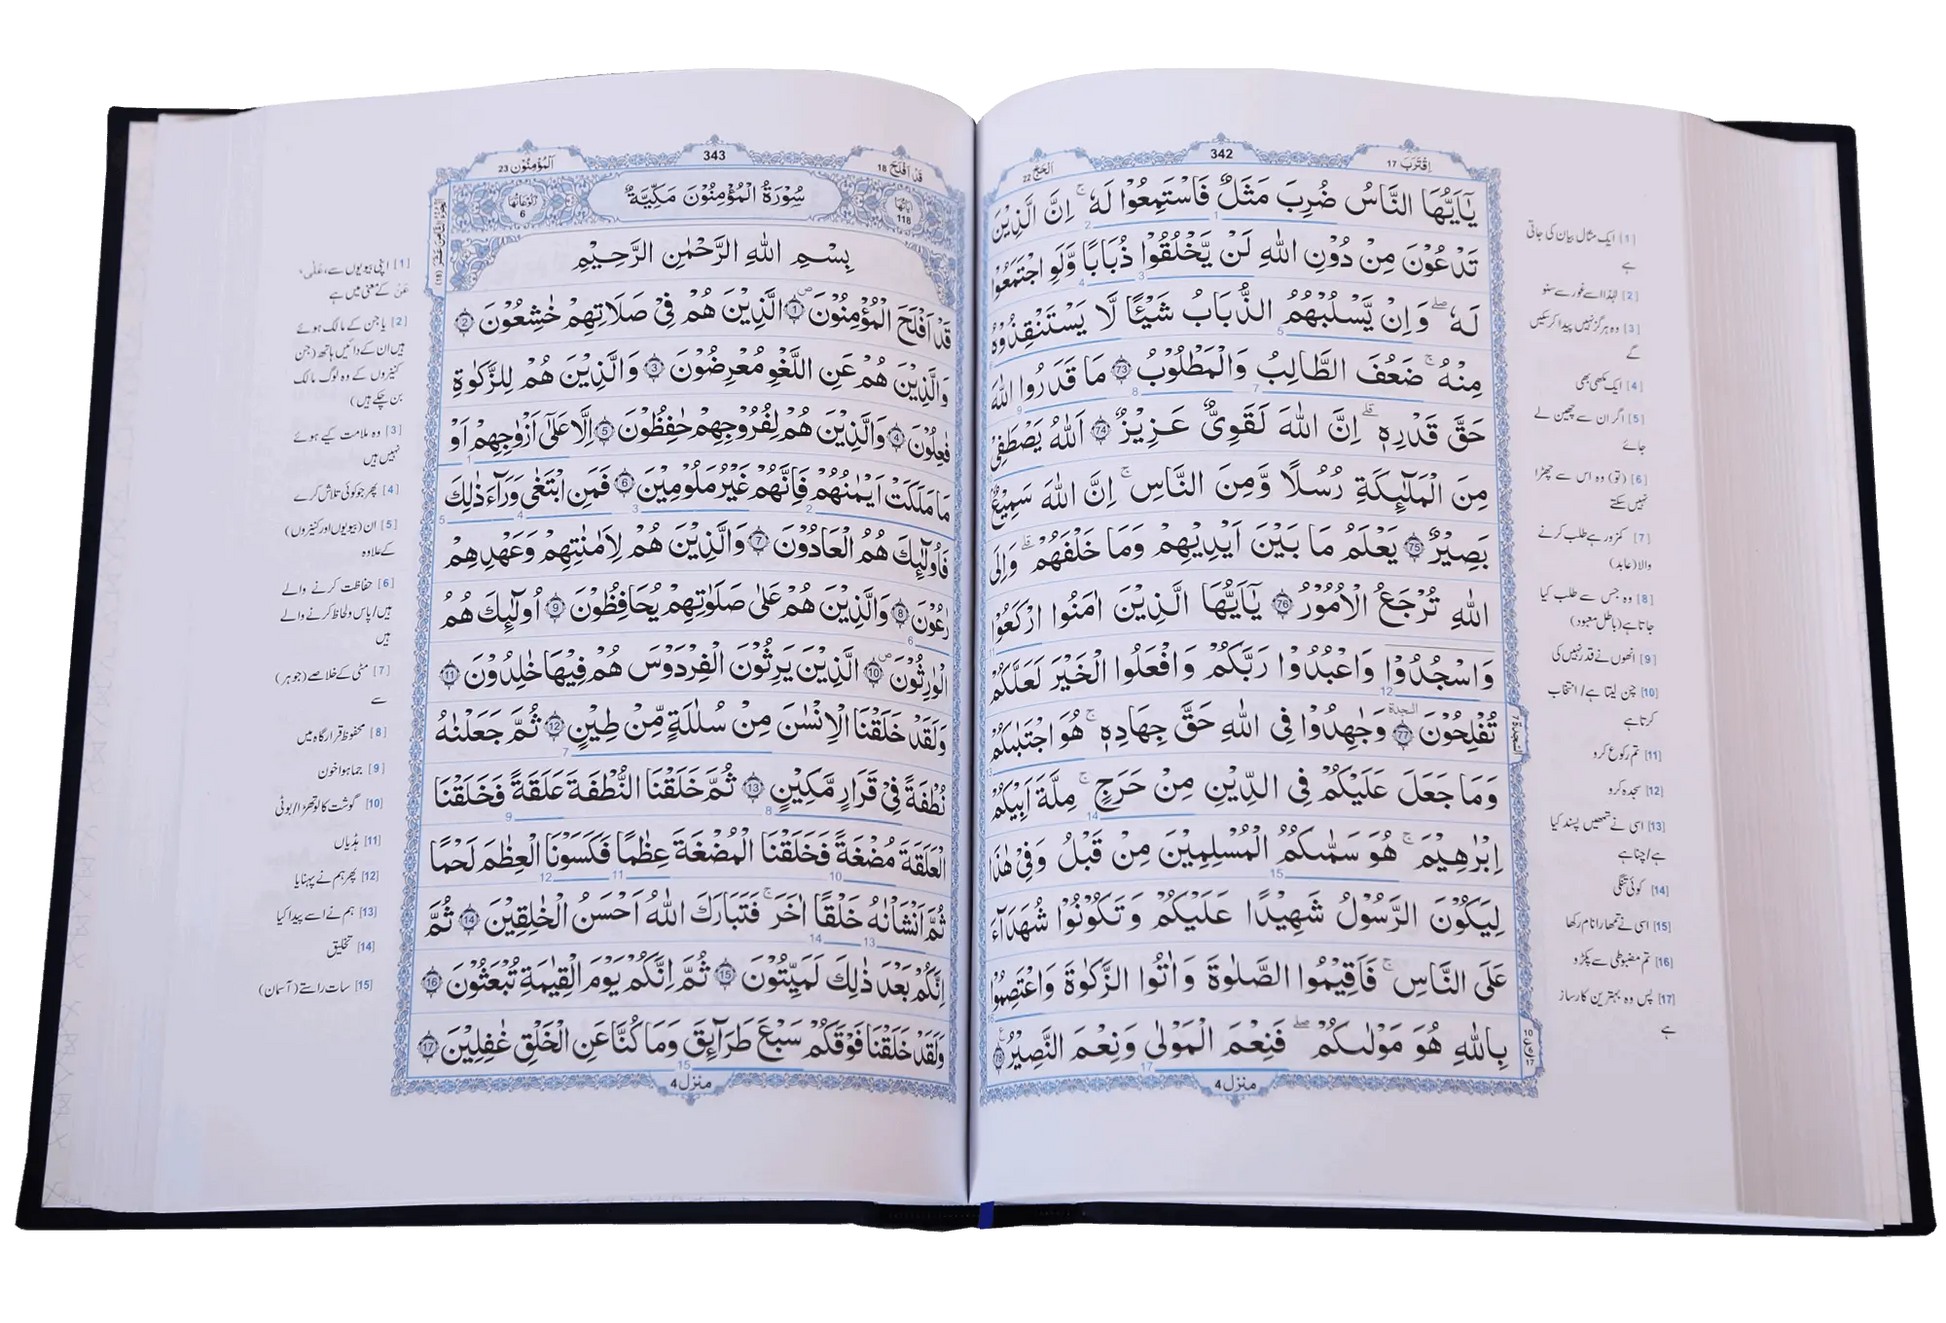 اِقْتَرَبَ 17
342
اَلْحَجّ 22
يٰۤاَيُّهَا النَّاسُ ضُرِبَ مَثَلٌ فَاسْتَمِعُوْا لَهٗ ؕ اِنَّ الَّذِيْنَ
تَدْعُوْنَ مِنْ دُوْنِ اللّٰهِ لَنْ يَّخْلُقُوْا ذُبَابًا وَّلَوِ اجْتَمَعُوْا
لَهٗ ؕ وَاِنْ يَّسْلُبْهُمُ الذُّبَابُ شَيْـًٔا لَّا يَسْتَنْقِذُوْهُ
مِنْهُ ؕ ضَعُفَ الطَّالِبُ وَالْمَطْلُوْبُ 73 مَا قَدَرُوا اللّٰهَ
حَقَّ قَدْرِهٖ ؕ اِنَّ اللّٰهَ لَقَوِيٌّ عَزِيْزٌ 74 اَللّٰهُ يَصْطَفِيْ
مِنَ الْمَلٰٓئِكَةِ رُسُلًا وَّمِنَ النَّاسِ ؕ اِنَّ اللّٰهَ سَمِيْعٌۢ
بَصِيْرٌ 75 يَعْلَمُ مَا بَيْنَ اَيْدِيْهِمْ وَمَا خَلْفَهُمْ ؕ وَاِلَى
اللّٰهِ تُرْجَعُ الْاُمُوْرُ 76 يٰۤاَيُّهَا الَّذِيْنَ اٰمَنُوا ارْكَعُوْا
وَاسْجُدُوْا وَاعْبُدُوْا رَبَّكُمْ وَافْعَلُوا الْخَيْرَ لَعَلَّكُمْ
تُفْلِحُوْنَ 77 السجدة وَجٰهِدُوْا فِى اللّٰهِ حَقَّ جِهَادِهٖ ؕ هُوَ اجْتَبٰىكُمْ
وَمَا جَعَلَ عَلَيْكُمْ فِى الدِّيْنِ مِنْ حَرَجٍ ؕ مِلَّةَ اَبِيْكُمْ
اِبْرٰهِيْمَ ؕ هُوَ سَمّٰىكُمُ الْمُسْلِمِيْنَ مِنْ قَبْلُ وَفِيْ هٰذَا
لِيَكُوْنَ الرَّسُوْلُ شَهِيْدًا عَلَيْكُمْ وَتَكُوْنُوْا شُهَدَآءَ
عَلَى النَّاسِ ؕ فَاَقِيْمُوا الصَّلٰوةَ وَاٰتُوا الزَّكٰوةَ وَاعْتَصِمُوْا
بِاللّٰهِ هُوَ مَوْلٰىكُمْ ؕ فَنِعْمَ الْمَوْلٰى وَنِعْمَ النَّصِيْرُ 78
منزل 4
[1] ایک مثال بیان کی جاتی
ہے
[2] لہٰذا اسے غور سے سنو
[3] وہ ہرگز نہیں پیدا کرسکیں
گے
[4] ایک مکھی بھی
[5] اگر ان سے چھین لے
جائے
[6] (تو) وہ اس سے چھڑا
نہیں سکتے
[7] کمزور ہے طلب کرنے
والا (عابد)
[8] وہ جس سے طلب کیا
جاتا ہے (باطل معبود)
[9] انھوں نے قدر نہیں کی
[10] چن لیتا ہے / انتخاب
کرتا ہے
[11] تم رکوع کرو
[12] سجدہ کرو
[13] اسی نے تمھیں پسند کیا
ہے / چنا ہے
[14] کوئی تنگی
[15] اسی نے تمھارا نام رکھا
[16] تم مضبوطی سے پکڑو
[17] پس وہ بہترین کارساز
ہے
قَدْ اَفْلَحَ 18
343
اَلْمُؤْمِنُوْن 23
اٰيَاتُهَا 118
سُوْرَةُ الْمُؤْمِنُوْنَ مَكِّيَّةٌ
رُكُوْعَاتُهَا 6
بِسْمِ اللّٰهِ الرَّحْمٰنِ الرَّحِيْمِ
قَدْ اَفْلَحَ الْمُؤْمِنُوْنَ 1 الَّذِيْنَ هُمْ فِيْ صَلَاتِهِمْ خٰشِعُوْنَ 2
وَالَّذِيْنَ هُمْ عَنِ اللَّغْوِ مُعْرِضُوْنَ 3 وَالَّذِيْنَ هُمْ لِلزَّكٰوةِ
فٰعِلُوْنَ 4 وَالَّذِيْنَ هُمْ لِفُرُوْجِهِمْ حٰفِظُوْنَ 5 اِلَّا عَلٰۤى اَزْوٰجِهِمْ اَوْ
مَا مَلَكَتْ اَيْمٰنُهُمْ فَاِنَّهُمْ غَيْرُ مَلُوْمِيْنَ 6 فَمَنِ ابْتَغٰى وَرَآءَ ذٰلِكَ
فَاُولٰٓئِكَ هُمُ الْعَادُوْنَ 7 وَالَّذِيْنَ هُمْ لِاَمٰنٰتِهِمْ وَعَهْدِهِمْ
رٰعُوْنَ 8 وَالَّذِيْنَ هُمْ عَلٰى صَلَوٰتِهِمْ يُحَافِظُوْنَ 9 اُولٰٓئِكَ هُمُ
الْوٰرِثُوْنَ 10 الَّذِيْنَ يَرِثُوْنَ الْفِرْدَوْسَ هُمْ فِيْهَا خٰلِدُوْنَ 11
وَلَقَدْ خَلَقْنَا الْاِنْسٰنَ مِنْ سُلٰلَةٍ مِّنْ طِيْنٍ 12 ثُمَّ جَعَلْنٰهُ
نُطْفَةً فِيْ قَرَارٍ مَّكِيْنٍ 13 ثُمَّ خَلَقْنَا النُّطْفَةَ عَلَقَةً فَخَلَقْنَا
الْعَلَقَةَ مُضْغَةً فَخَلَقْنَا الْمُضْغَةَ عِظٰمًا فَكَسَوْنَا الْعِظٰمَ لَحْمًا
ثُمَّ اَنْشَاْنٰهُ خَلْقًا اٰخَرَ ؕ فَتَبَارَكَ اللّٰهُ اَحْسَنُ الْخٰلِقِيْنَ 14 ثُمَّ
اِنَّكُمْ بَعْدَ ذٰلِكَ لَمَيِّتُوْنَ 15 ثُمَّ اِنَّكُمْ يَوْمَ الْقِيٰمَةِ تُبْعَثُوْنَ 16
وَلَقَدْ خَلَقْنَا فَوْقَكُمْ سَبْعَ طَرَآئِقَ وَمَا كُنَّا عَنِ الْخَلْقِ غٰفِلِيْنَ 17
منزل 4
[1] اپنی بیویوں سے، عَلٰی،
عَنْ کے معنی میں ہے
[2] یا جن کے مالک ہوئے
ہیں ان کے دائیں ہاتھ (جن
کنیزوں کے وہ لوگ مالک
بن چکے ہیں)
[3] وہ ملامت کیے ہوئے
نہیں ہیں
[4] پھر جو کوئی تلاش کرے
[5] ان (بیویوں اور کنیزوں)
کے علاوہ
[6] حفاظت کرنے والے
ہیں / پاس و لحاظ کرنے والے
ہیں
[7] مٹی کے خلاصے (جوہر)
سے
[8] محفوظ قرار گاہ میں
[9] جما ہوا خون
[10] گوشت کا لوتھڑا / بوٹی
[11] ہڈیاں
[12] پھر ہم نے پہنایا
[13] ہم نے اسے پیدا کیا
[14] تخلیق
[15] سات راستے (آسمان)